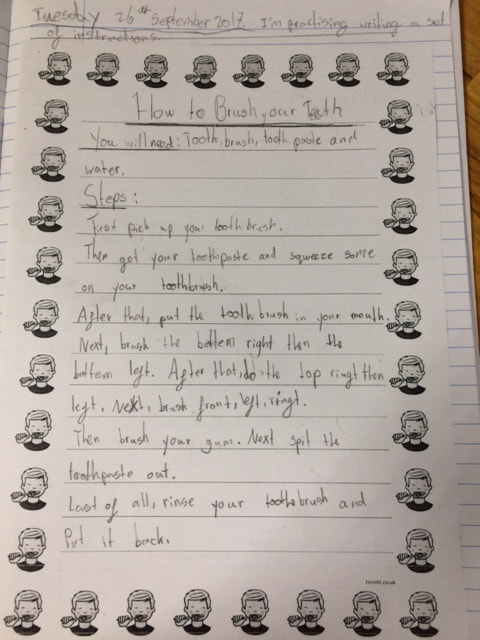 Tuesday 26th September 2017. I'm practising writing a set
of instructions.
How to Brush your Teeth
You will need: Tooth, brush, tooth paste and
water.
Steps:
First pick up your tooth brush.
Then got your toothpaste and squeeze some
on your toothbrush.
After that, put the toothbrush in your mouth.
Next, brush the bottem right then the
bottem left. After that, do the top ringt then
left. Next, brush front, left, ringt.
Then brush your gum. Next spit the
toothpaste out.
Last of all, rinse your toothebrush and
Put it back.
twinkl.co.uk